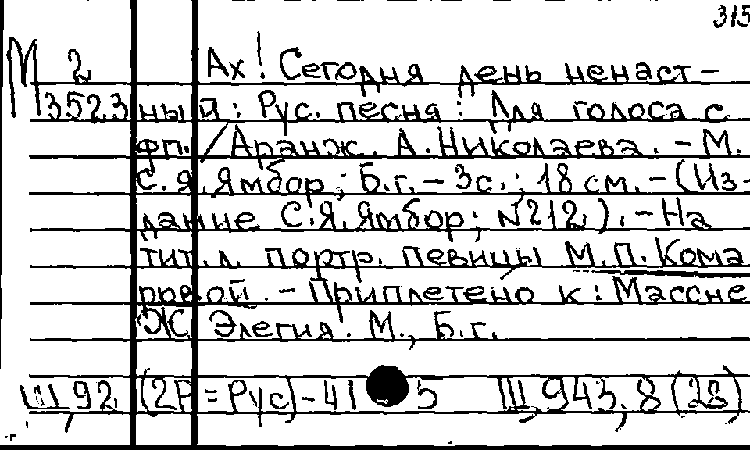 315
М 2 Ах! Сегодня день ненаст-
3523 ный: Рус. песня: Для голоса с
фп. / Аранж. А. Николаева. - М.
С.Я. Ямбор; Б.г. - 3с.; 18 см. - (Из-
дание С.Я. Ямбор; №212). - На
тит. л. портр. певицы М.П. Кома
ровой. - Приплетено к: Массне
Ж Элегия. М., Б.г.
Щ,92 (2Р=Рус)-41 5 Щ,943,8(28)